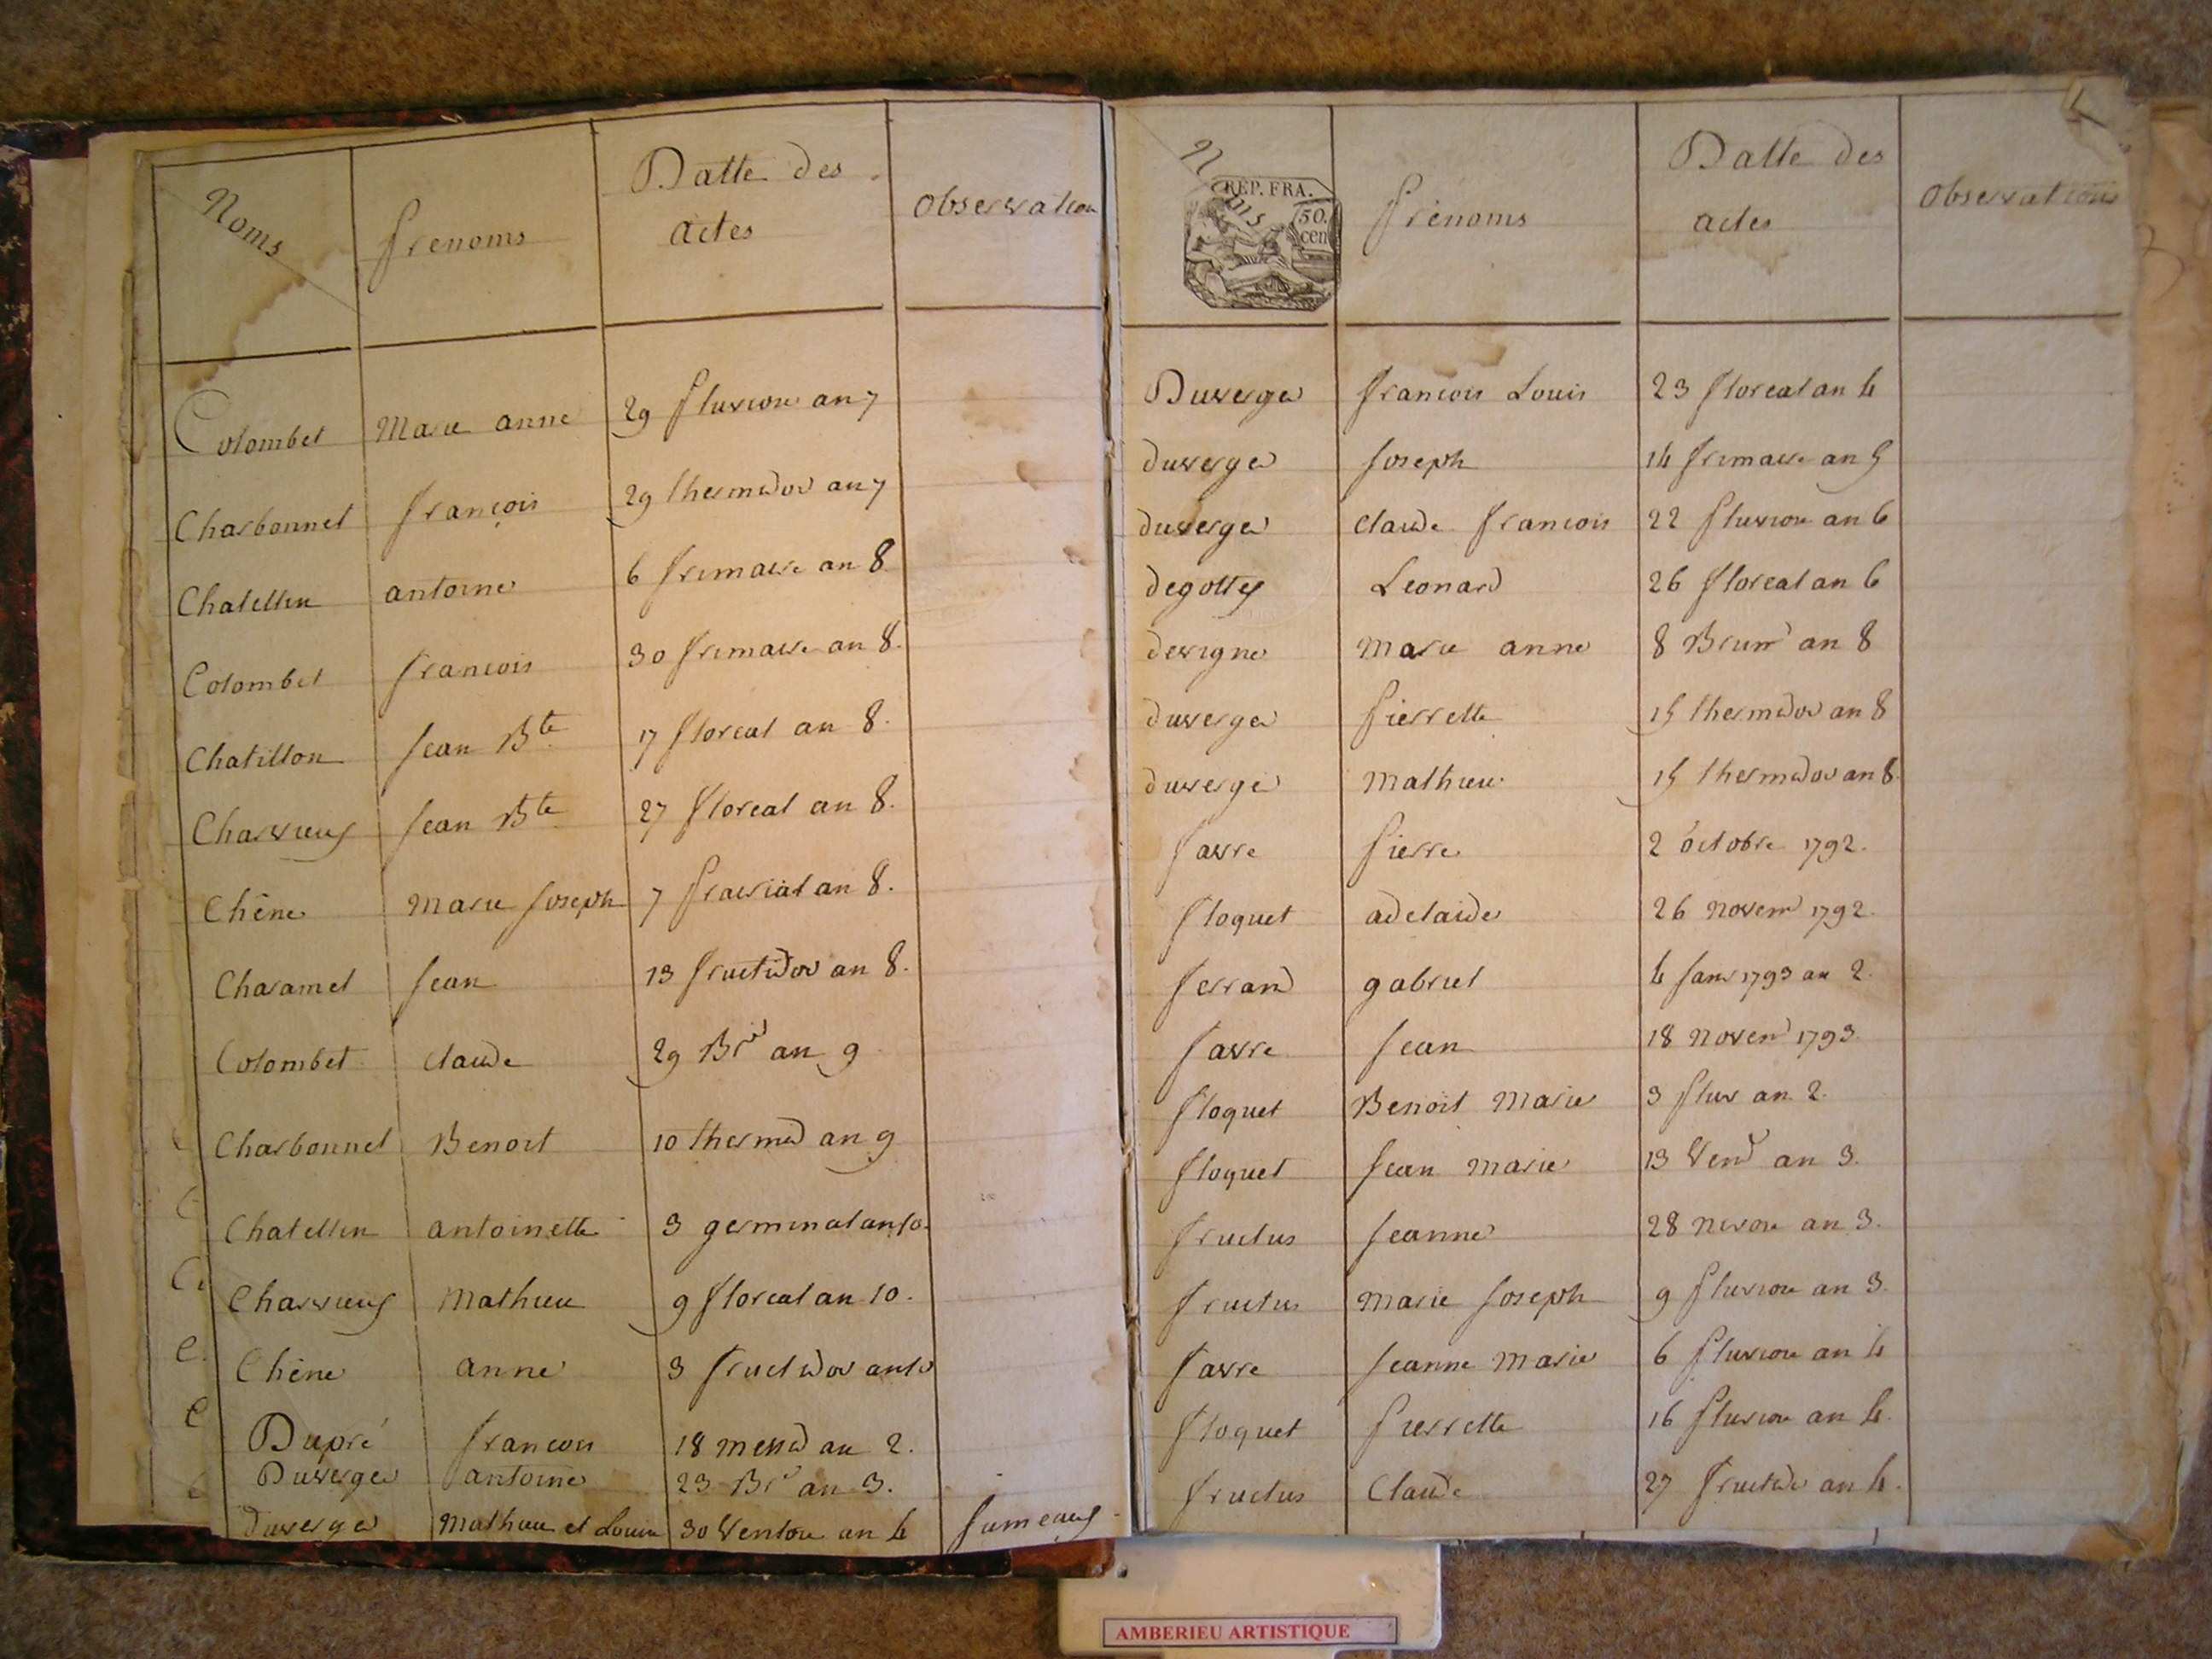 Noms Prenoms Datte des actes Observation
Colombet Marie anne 29 Pluviose an 7
Charbonnet françois 29 thermidor an 7
Chatellin antoine 6 frimaire an 8
Colombet francois 30 frimaire an 8.
Chatillon Jean Bte 17 floreal an 8.
Chavrieux Jean Bte 27 floreal an 8.
Chêne Marie Joseph 7 Prairial an 8.
Charamel Jean 13 fructidor an 8.
Colombet Claude 29 Bre an 9
Charbonnet Benoit 10 thermid an 9
Chatellin antoinette 3 germinal an 10.
Chavrieux Mathieu 9 floreal an 10.
Chêne anne 3 fructidor an 10
Dupré francois 18 messid an 2.
Duverger antoine 23 Bre an 3.
Duverger Mathieu et Louise 30 Ventose an 4 Jumeaux
Noms Prénoms Datte des actes Observations
REP. FRA.
50.
cen
Duverger francois Louis 23 floreal an 4
duverger Joseph 14 frimaire an 5
duverger Claude francois 22 Pluviose an 6
degottex Leonard 26 floreal an 6
devigne Marie anne 8 Brumre an 8
duverger Pierrette 15 thermidor an 8
duverger Mathieu 15 thermidor an 8.
favre Pierre 2 octobre 1792.
floquet adelaide 26 Novemr 1792.
ferrand gabriel 4 Janv 1793 an 2.
favre Jean 18 Novemr 1793.
floquet Benoit Marie 3 Pluv an 2.
floquet Jean Marie 13 Vend an 3.
fructus Jeanne 28 Nivose an 3.
fructus Marie Joseph 9 Pluviose an 3.
favre Jeanne Marie 6 Pluviose an 4
floquet Pierrette 16 Pluviose an 4.
fructus Claude 27 fructidr an 4.
AMBERIEU ARTISTIQUE